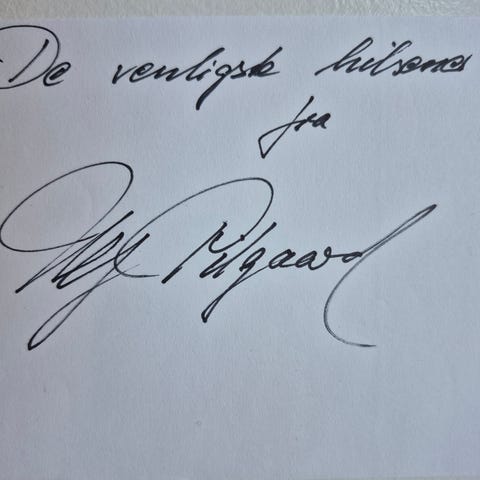 De venligste hilsener
fra
Ulf Pilgaard